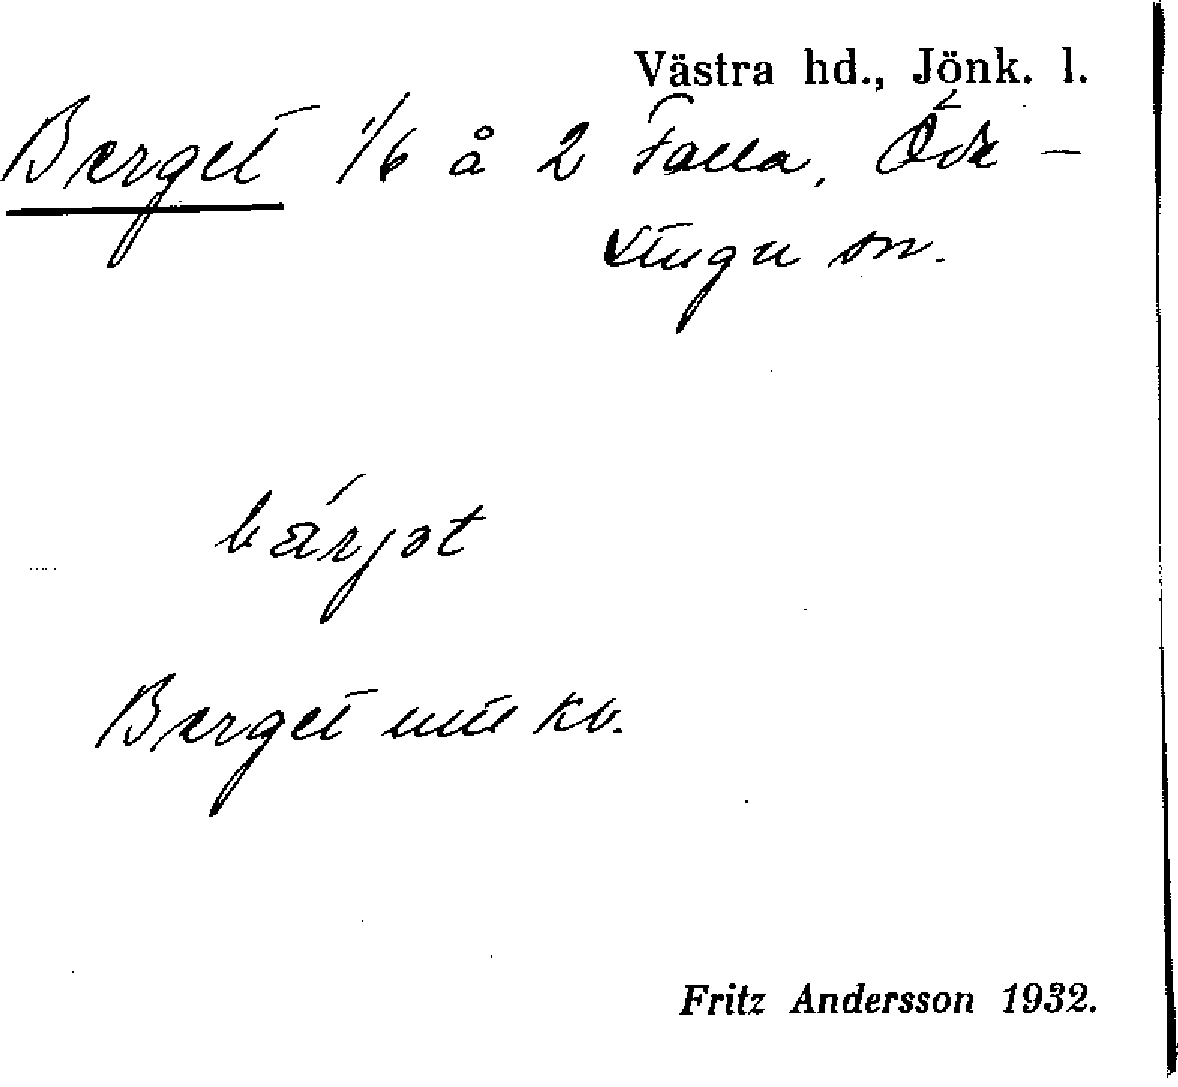 Västra hd., Jönk. l.
Berget 1/6 å 2 Falla, Öde-
stugu sn.
bärjət
Berget
Fritz Andersson 1932.